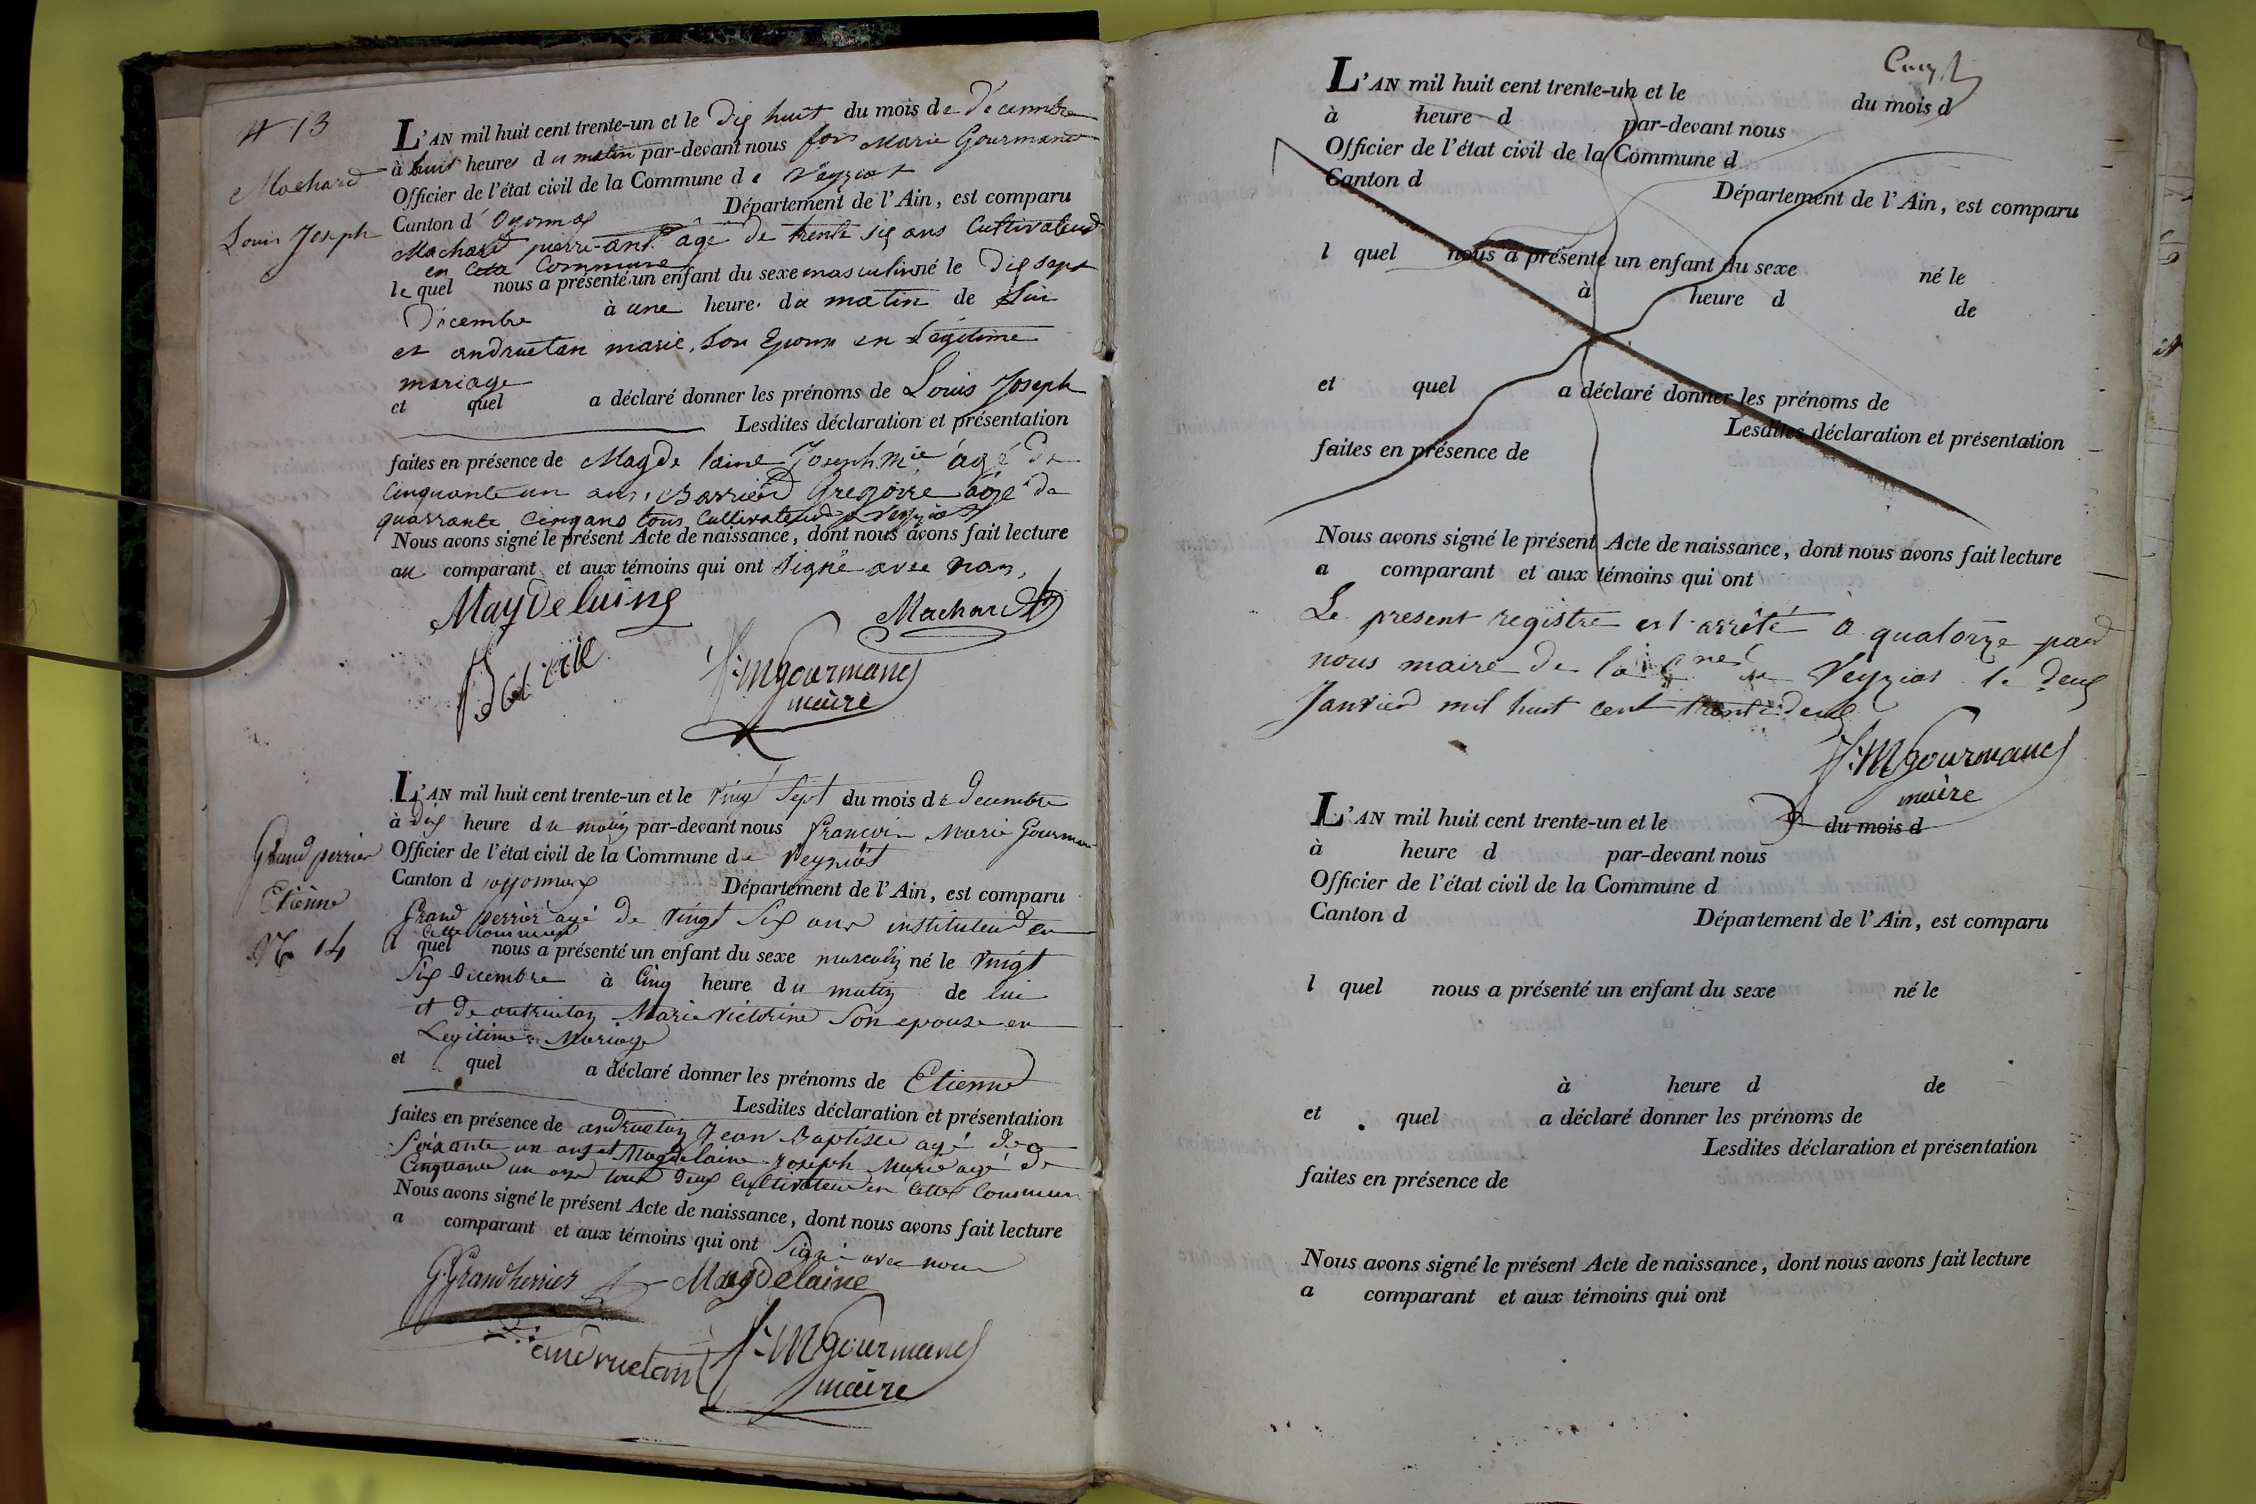 N 13
Machard
Louis Joseph
L'AN mil huit cent trente-un et le dix huit du mois de décembre
à huit heures du matin par-devant nous fois Marie Gourmand
Officier de l'état civil de la Commune de Veyziat
Canton d'Oyonnax Département de l'Ain, est comparu
Machard pierre-ant. âgé de trente six ans Cultivateur
en Cette Commune
lequel nous a présenté un enfant du sexe masculin né le dix sept
Décembre à une heure du matin de Lui
et andruetan marie, Son Epouse en Légitime
mariage
et quel a déclaré donner les prénoms de Louis Joseph
Lesdites déclaration et présentation
faites en présence de Magdelaine Joseph Mie âgé de
Cinquante un ans, Gregoire âgé de
quarrante Cinq ans tous Cultivateurs à Veyziat
Nous avons signé le présent Acte de naissance, dont nous avons fait lecture
au comparant et aux témoins qui ont signé avec nous,
Magdelaine
Machard
f. M gourmand
maire
Grand perrier
Etiènne
No 14
L'AN mil huit cent trente-un et le vingt Sept du mois de decembre
à dix heure du matin par-devant nous francois Marie Gourman
Officier de l'état civil de la Commune de Veyziat
Canton d oyonnax Département de l'Ain, est comparu
Grand perrier agé de vingt Six ans instituteur en
Cette commune
l quel nous a présenté un enfant du sexe masculin né le vingt
Six decembre à Cinq heure du matin de lui
et de andruetan Marie victorine Son epouse en
Legitime Mariage
et quel a déclaré donner les prénoms de Etienne
Lesdites déclaration et présentation
faites en présence de andruetan Jean Baptiste agé de
Soixante un ans et Magdelaine Joseph Marie agé de
Cinquante un ans tous deux Cultivateur en Cette Commune
Nous avons signé le présent Acte de naissance, dont nous avons fait lecture
a comparant et aux témoins qui ont Signé avec nous
G. Grandperrier Magdelaine
andruetan
f. M gourmand
maire
L'AN mil huit cent trente-un et le du mois d
à heure d par-devant nous
Officier de l'état civil de la Commune d
Canton d Département de l'Ain, est comparu
l quel nous a présenté un enfant du sexe né le
à heure d de
et quel a déclaré donner les prénoms de
Lesdites déclaration et présentation
faites en présence de
Nous avons signé le présent Acte de naissance, dont nous avons fait lecture
a comparant et aux témoins qui ont
Le present registre est arrêté à quatorze par
nous maire de la Cne de Veyziat le deux
Janvier mil huit cent trente deux
f. M gourmand
maire
L'AN mil huit cent trente-un et le du mois d
à heure d par-devant nous
Officier de l'état civil de la Commune d
Canton d Département de l'Ain, est comparu
l quel nous a présenté un enfant du sexe né le
à heure d de
et quel a déclaré donner les prénoms de
Lesdites déclaration et présentation
faites en présence de
Nous avons signé le présent Acte de naissance, dont nous avons fait lecture
a comparant et aux témoins qui ont